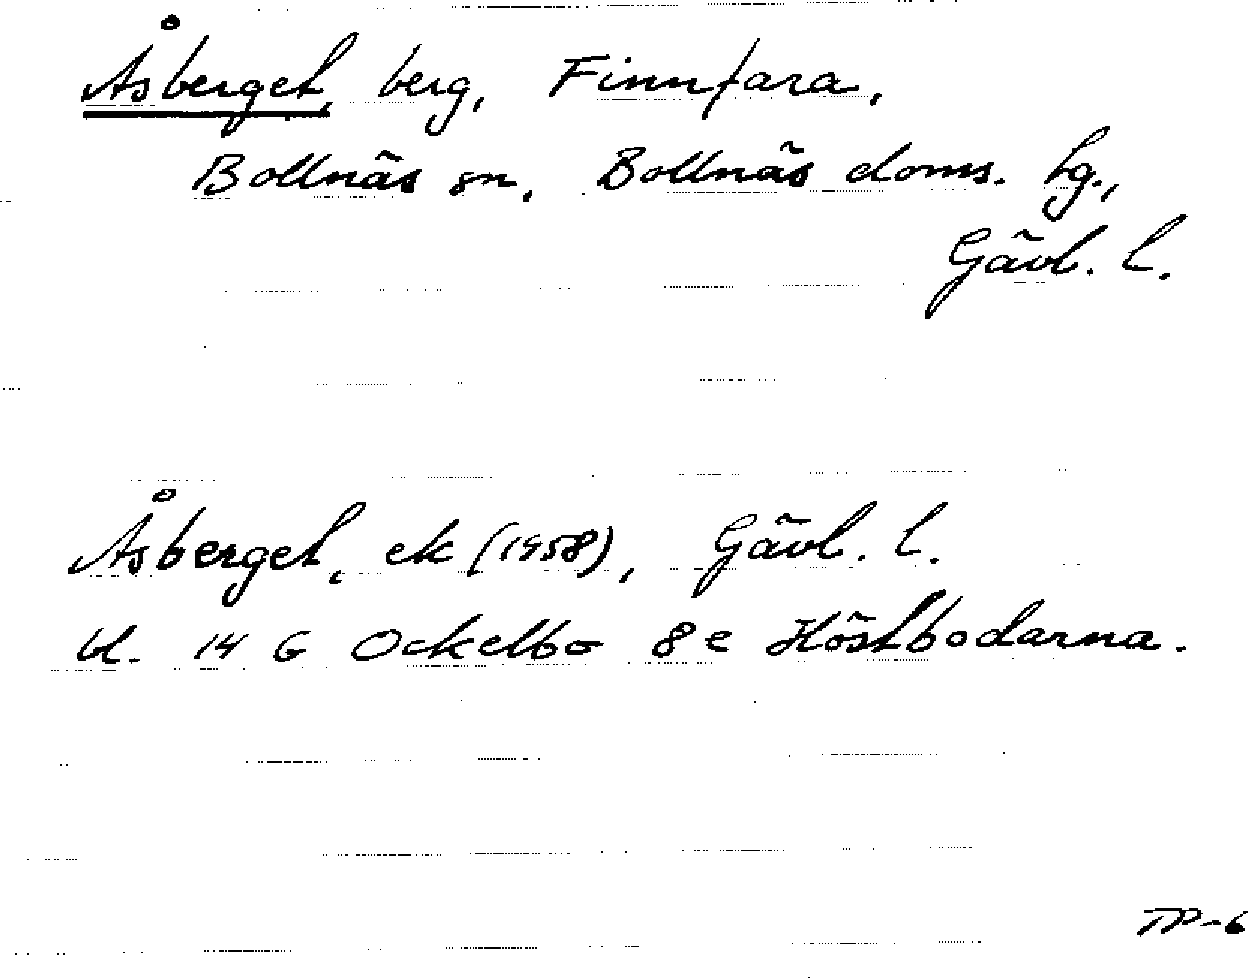 Åsberget, berg, Finnfara,
Bollnäs sn, Bollnäs doms. hg.,
Gävl. l.
Åsberget, ek (1958), Gävl. l.
bl. 14 G Ockelbo 8e Höstbodarna.
TP-6